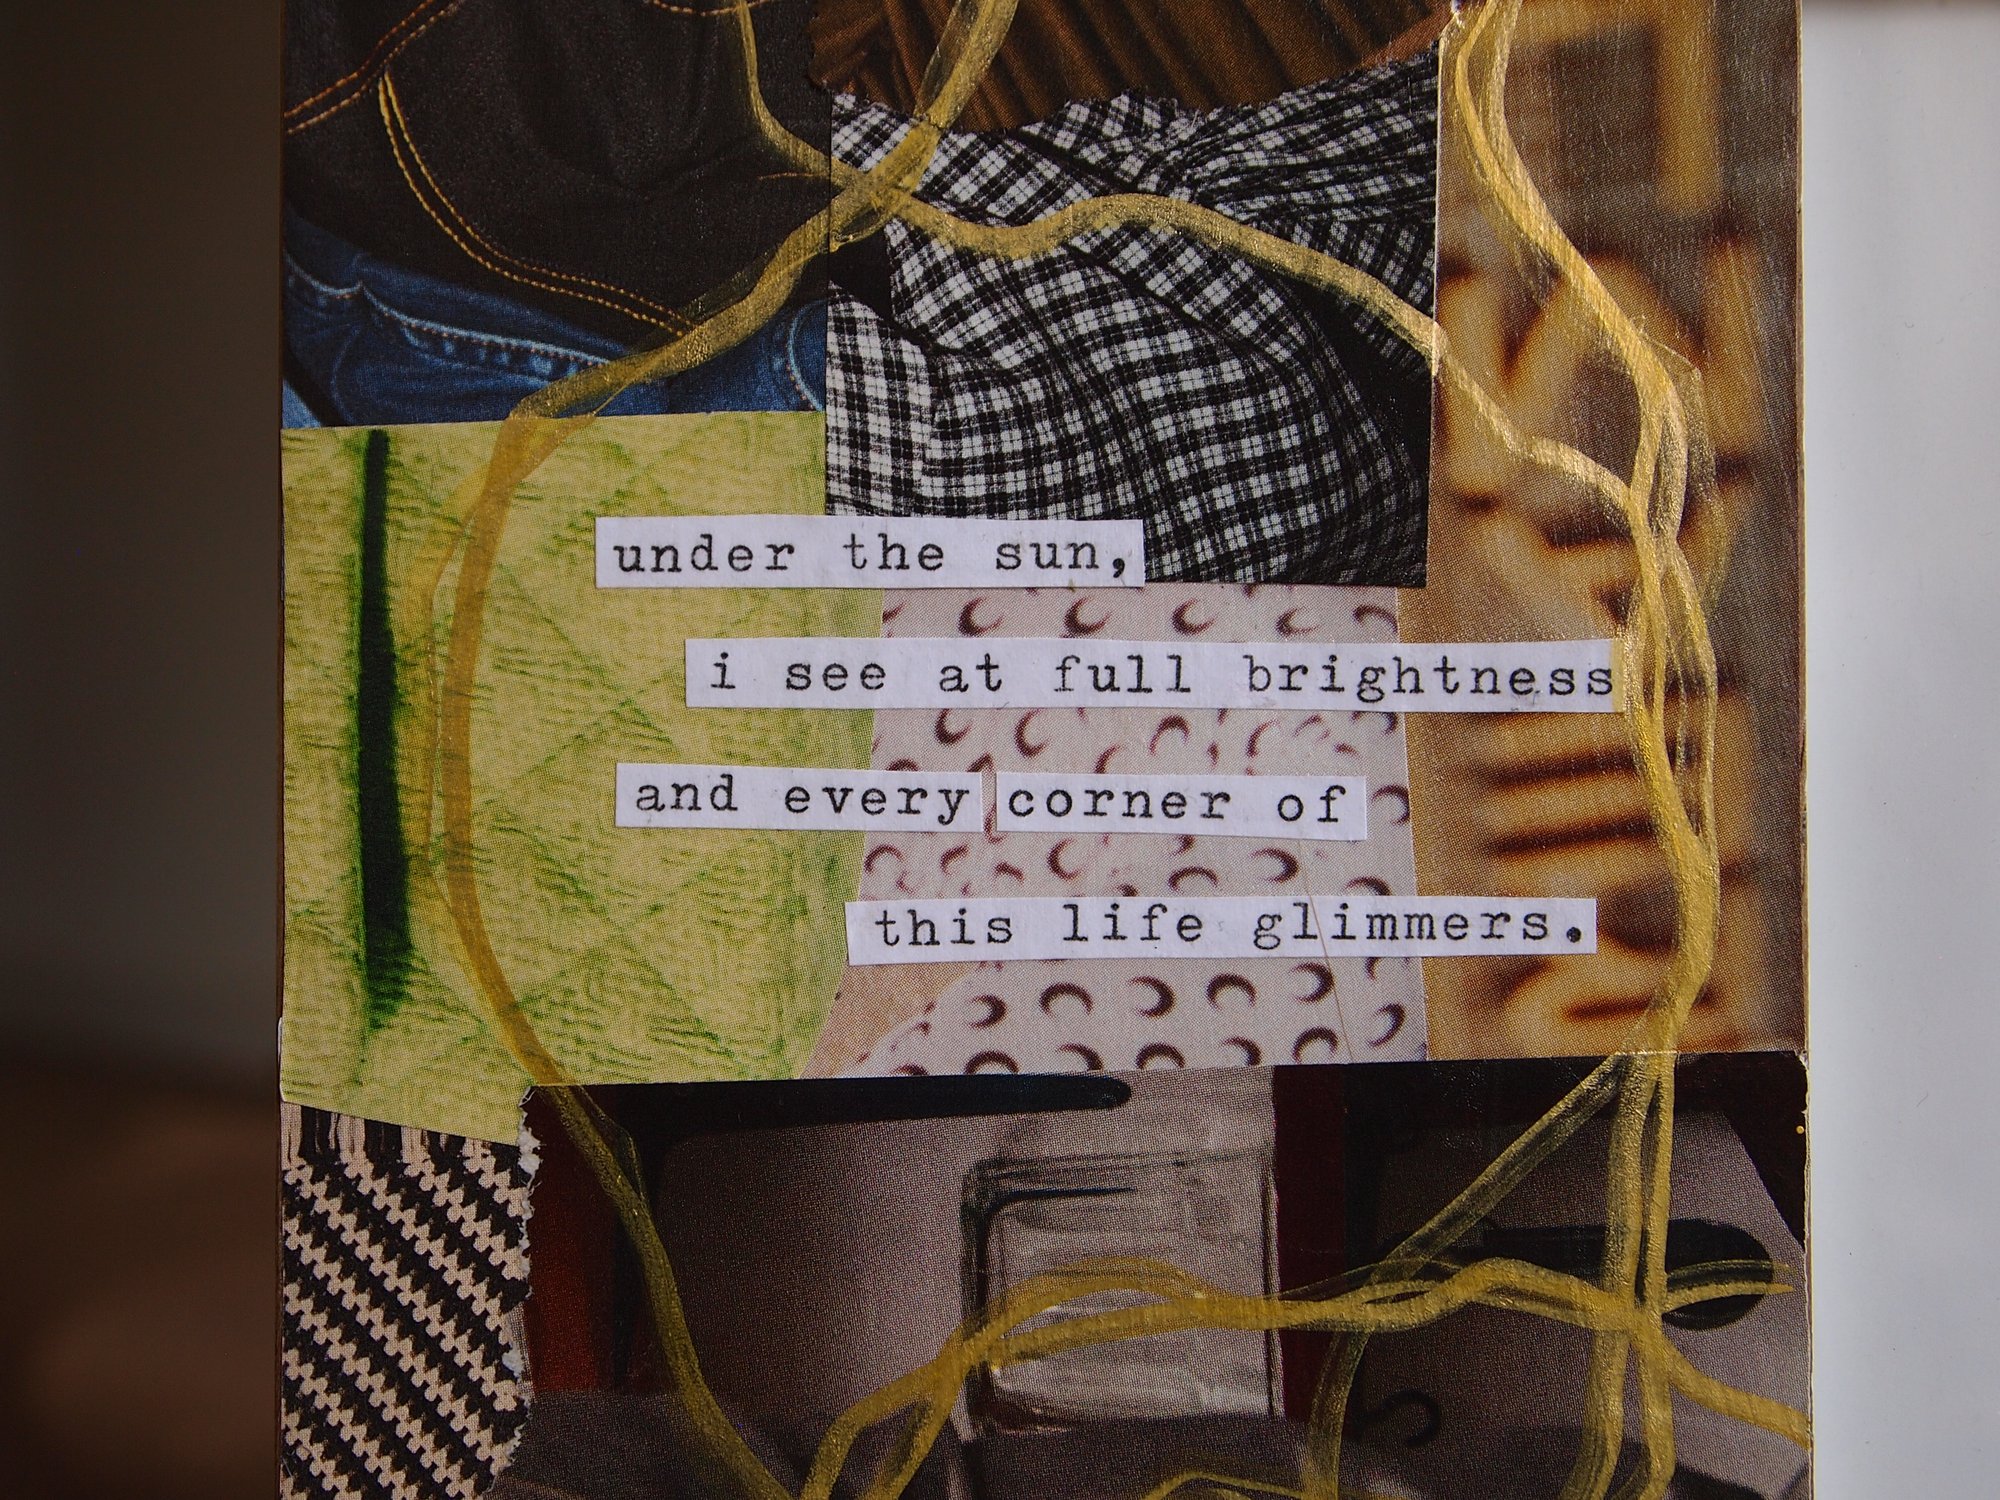 under the sun,
i see at full brightness
and every corner of
this life glimmers.